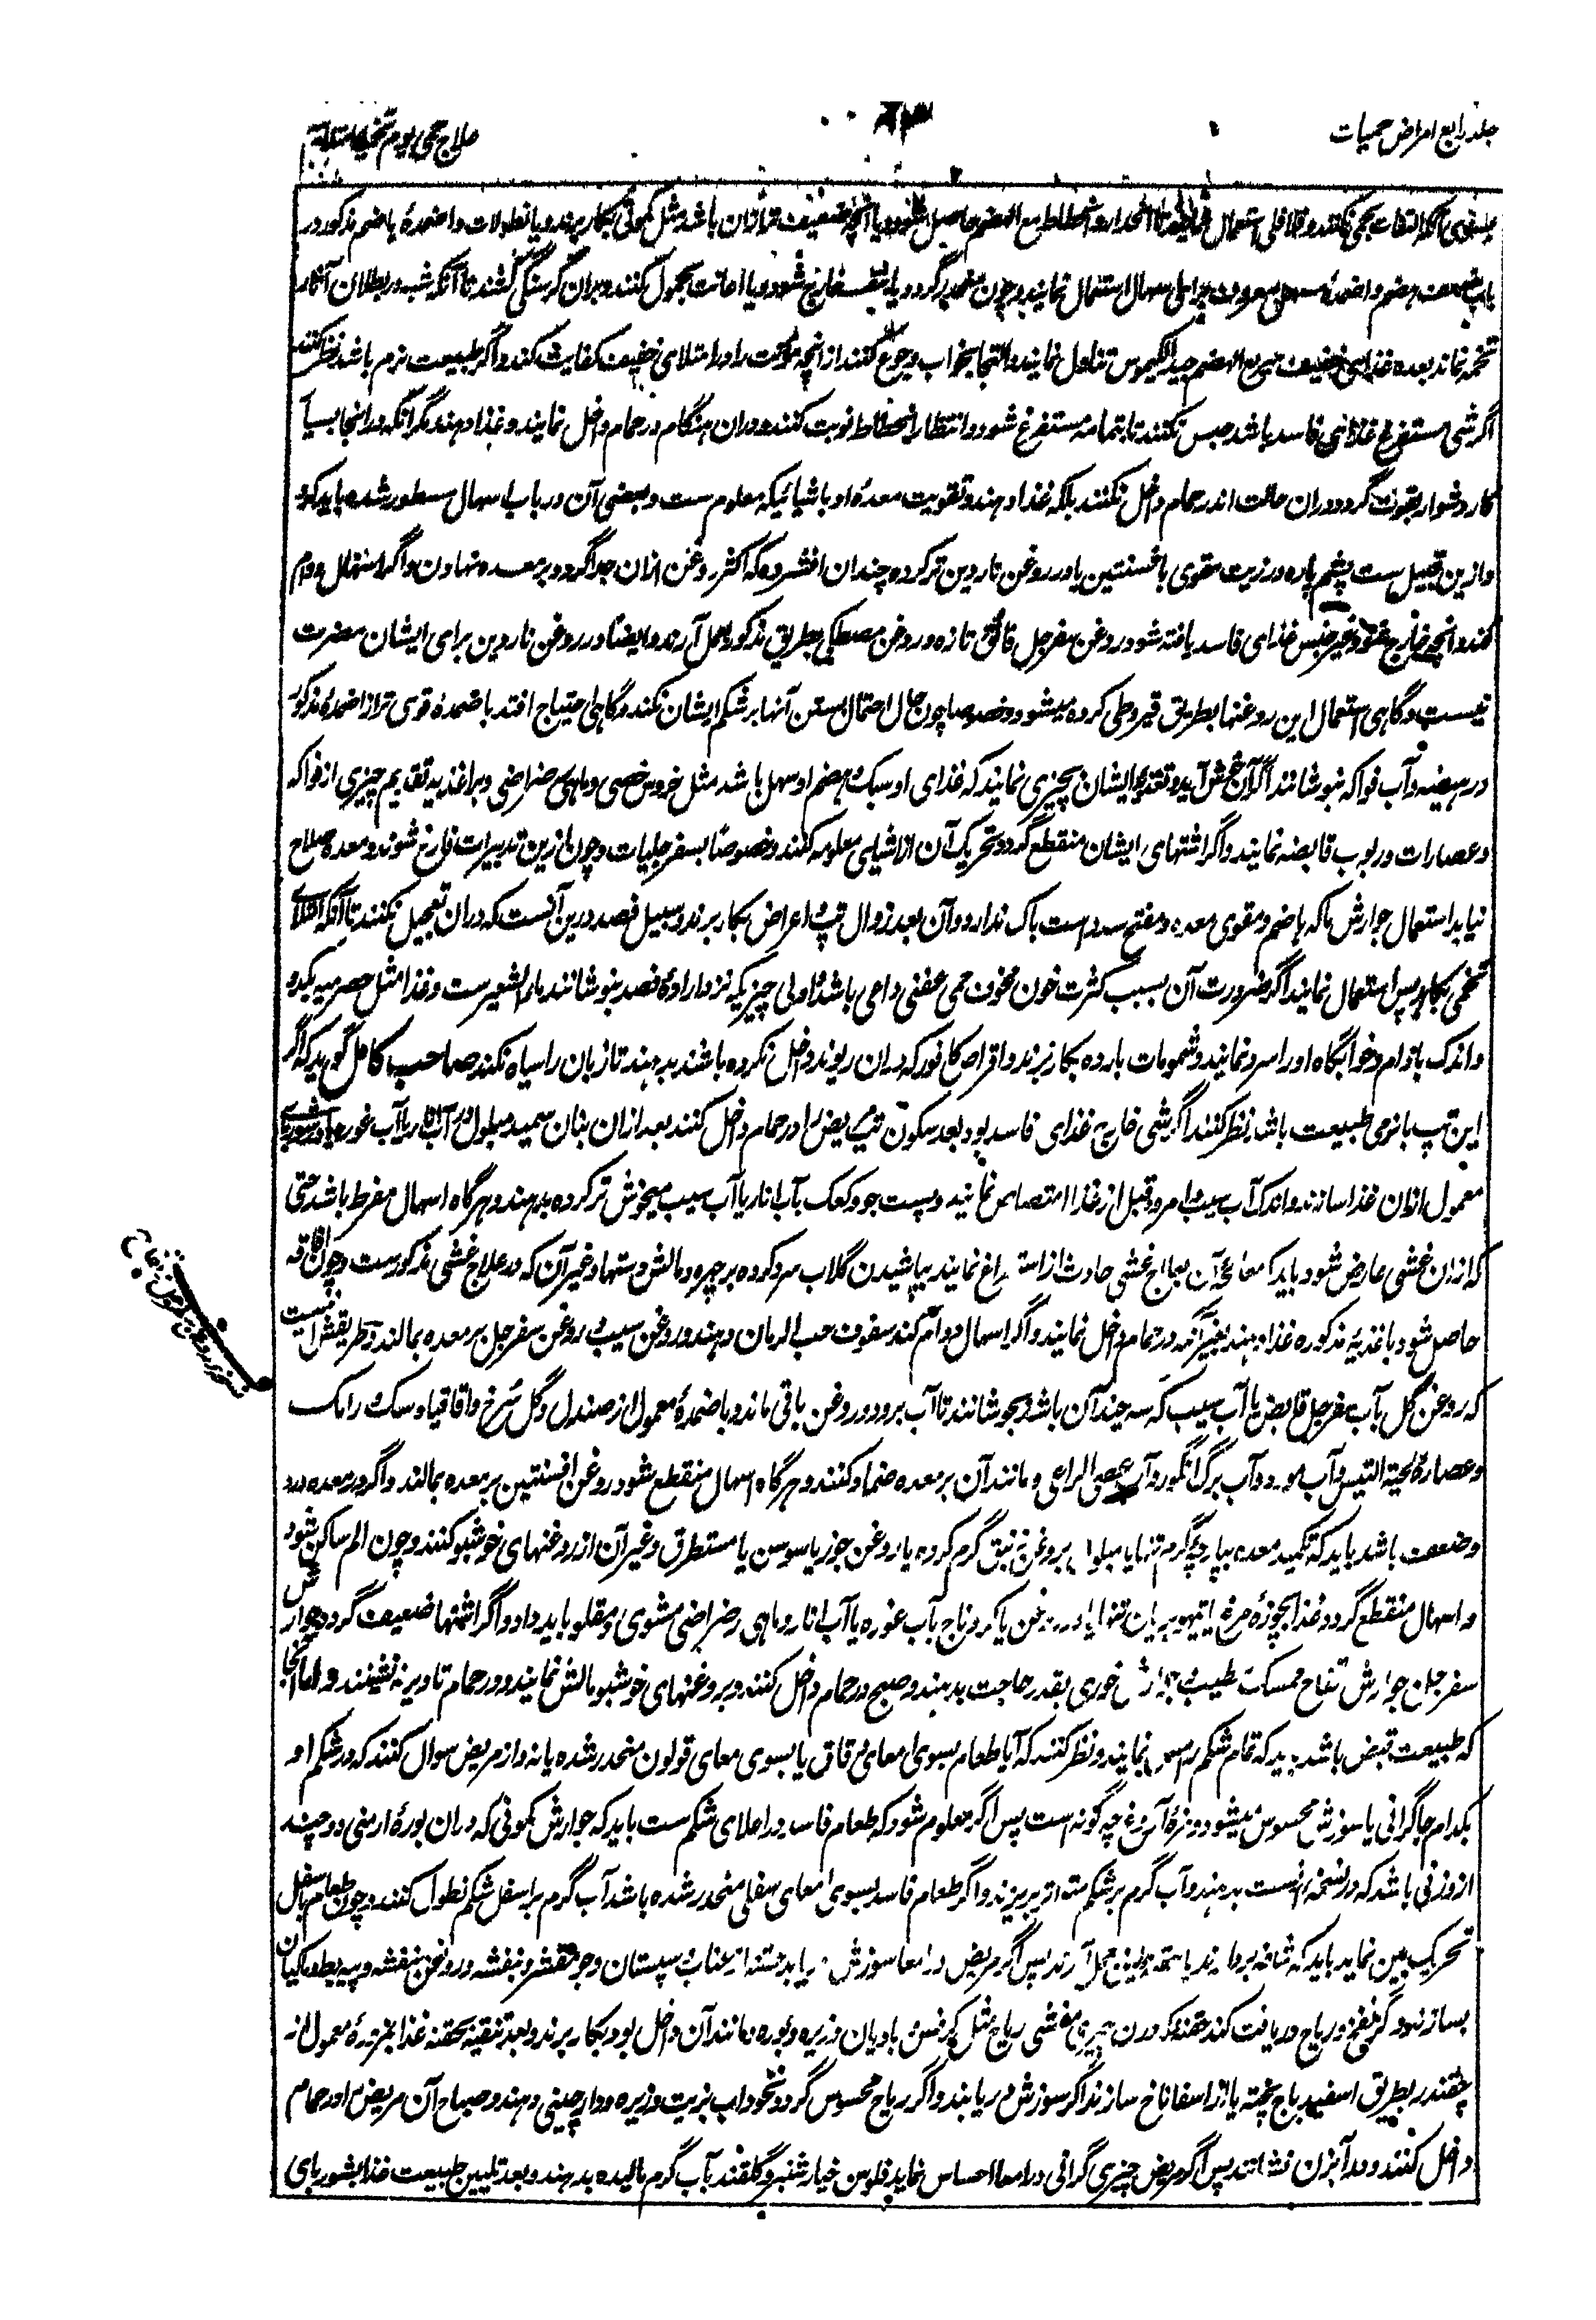 جلد رابع امراض حمیات
علاج حمی یوم
التفات بحمی نکنند و فلافلی استعمال نمایند تا انحدار و انحطاط مع الهضم حاصل شود و یا آنچه ضعیف تر ازان باشد مثل کمونی بکار برند و یا نطولات و اضمدهٔ هاضم مذکور در
باب ضعف هضم و اضمدهٔ مسهلی معروف برای اسهال استعمال نمایند و چون منحدر گردد و یا بنفسه خارج شود و یا اعانت بحمول کنند و بران گرسنگی کشند تا آنکه شبه در بطلان آثار
تخمه نماند بعده غذای خفیف سریع الهضم جید الکیموس تناول نمایند و التجا بخواب و جوع کنند از آنچه مؤنت را در امتلای خفیف کفایت کند و اگر طبیعت نرم باشد نظر کنند
اگر شی مستفرغ غذائی فاسد باشد حبس نکنند تا بتمامه مستفرغ شود و انتظار انحطاط نوبت کنند و دران هنگام در حمام داخل نمایند و غذا دهند مگر آنکه در اینجا بسیار
کار دشوار بقوت گردد دران حالت اندر حمام داخل نکنند بلکه غذا دهند و تقویت معدهٔ او باشیائیکه معلوم ست و بعضی آن در باب اسهال مسطور شده باید کرد
و ازین قبیل ست پشم پاره در زیت مقوی با فسنتین یا در روغن ناردین تر کرده چندان افشرده که اکثر روغن ازان جدا گردد و بر معده نهادن و اگر اسهال دوام
کند و آنچه خارج شود غیر جنس غذای فاسد یافته شود روغن سفرجل فائق تازه و روغن مصطکی بطریق مذکور بعمل آرند و ایضاً در روغن ناردین برای ایشان مضرت
نیست و گاهی استعمال این روغنها بطریق قیروطی کرده میشود و خصوصا چون حال احتمال بستن آنها بر شکم ایشان نکند و گاهی احتیاج افتد باضمدهٔ قوی تر از اضمدهٔ مذکور
در هیضه و آب فواکه بنوشانند اگر ازان خوش آید و تغذیه ایشان بچیزی نمایند که غذای او سبک و هضم او سهل باشد مثل خروس خصی و ماهی رضراضی و بر اغذیه تقدیم چیزی از فواکه
و عصارات و ربوب قابضه نمایند و اگر اشتهای ایشان منقطع گردد تحریک آن از اشیای معلومه کنند و خصوصاً بسفرجلیات و چون ازین تدبیرات فارغ شوند و معده صلاح
نیابد استعمال جوارش ها که هاضم و مقوی معده و مفتح سدد است باک ندارد و آن بعد زوال تپ و اعراض بکار برند و سبیل فصد درین آنست که دران تعجیل نکنند تا آنکه امتلای
تخمی بکاهد پس استعمال نمایند اگر ضرورت آن بسبب کثرت خون مخوف حمی عفنی داعی باشد و اولی چیزیکه نزد ارادهٔ فصد بنوشانند ماء الشعیرست و غذا مثل حصرمیه بکدو
و اندک بادام و خوابگاه او را سرد نمایند و شمومات بارده بکار برند و اقراص کافور که دران ریوند داخل نکرده باشند بدهند تا زبان را سیاه نکند صاحب کامل گوید که اگر
این تپ با نرمی طبیعت باشد نظر کنند اگر شی خارج غذای فاسد بود بعد سکون تپ مریض را در حمام داخل کنند بعد ازان بنان سمید مبلول در آب انار یا آب غوره یا در شوربای
معمول ازان غذا سازند و اندک آب سیب و امرود قبل از غذا امتصاص نمایند و پست جو و کعک بآب انار یا آب سیب میخوش تر کرده بدهند و هرگاه اسهال مفرط باشد حتی
که ازان غشی عارض شود باید که معالجهٔ آن بعلاج غشی حادث از استفراغ نمایند بپاشیدن گلاب سرد کرده بر چهره و مالش دستها و غیر آن که در علاج غشی مذکورست و چون افاقه
حاصل شود باغذیهٔ مذکوره غذا دهند بغیر آنکه در حمام داخل نمایند و اگر اسهال دوام کند سفوف حب الرمان دهند و روغن سیب و روغن سفرجل بر معده بمالند و طریقش اینست
که روغن گل بآب سفرجل قابض یا آب سیب که سه چند آن باشد بجوشانند تا آب برود و روغن باقی ماند و باضمدهٔ معمول از صندل و گل سرخ و اقاقیا و سک و رامک
و عصارهٔ لحیة التیس و آب مورد و آب برگ انگور و آب عصی الراعی و مانند آن بر معده ضماد کنند و هرگاه اسهال منقطع شود روغن افسنتین بر معده بمالند و اگر در معده درد
و ضعف باشد باید که تکمید معده بپارچهٔ گرم تنها یا مبلول بروغن زنبق گرم کرده یا روغن جوز یا سوسن یا مستطرق و غیر آن از روغنهای خوشبو کنند و چون الم ساکن شود
و اسهال منقطع گردد غذا بچوزهٔ مرغ یا تیهو بریان تنها یا در روغن یا کردناج بآب غوره یا آب انار و ماهی رضراضی مشوی و مقلو باید داد و اگر اشتها ضعیف گردد جوارش
سفرجل و جوارش تفاح ممسک مطیب و جوارش خوزی بقدر حاجت بدهند و صبح در حمام داخل کنند و بروغنهای خوشبو مالش نمایند و در حمام تا دیر نه نشینند و اما آنجا
که طبیعت قبض باشد باید که تمام شکم را مس نمایند و نظر کنند که آیا طعام بسوی امعای دقاق یا بسوی معای قولون منحدر شده یا نه و از مریض سوال کنند که در شکم او
بکدام جا گرانی یا سوزش محسوس میشود و مزهٔ آروغ چه گونه است پس اگر معلوم شود که طعام فاسد در اعلای شکم ست باید که جوارش کمونی که دران بورهٔ ارمنی دو چند
از وزنی باشد که در نسخه است بدهند و آب گرم بر شکم متواتر بریزند و اگر طعام فاسد بسوی امعای سفلی منحدر شده باشد آب گرم بر اسفل شکم نطول کنند و چون طعام باسفل
تحریک بین نماید باید که شافه بردارند یا حقنه لین بعمل آرند پس اگر مریض در امعا سوزش دریابد حقنه از عناب و سپستان و جو مقشر و بنفشه و روغن بنفشه و پیه بط و ماکیان
بسازند و گر نفخ و ریاح دریافت کند حقنه که دران چیزی مفشی ریاح مثل کرفس و بادیان و زیره و بوره و مانند آن داخل بود بکار برند و بعد تنقیه بحقنه غذا بمزورهٔ معمول از
چقندر بطریق اسفیدباج پخته یا از اسفاناخ سازند اگر سوزش دریابند و اگر ریاح محسوس گردد نخوداب بزیت و زیره و دارچینی دهند و صباح آن مریض را در حمام
داخل کنند و در آبزن نشانند پس اگر مریض چیزی گرانی در امعا احساس نماید فلوس خیارشنبر و گلقند بآب گرم مالیده بدهند و بعد تلیین طبیعت غذا بشوربای